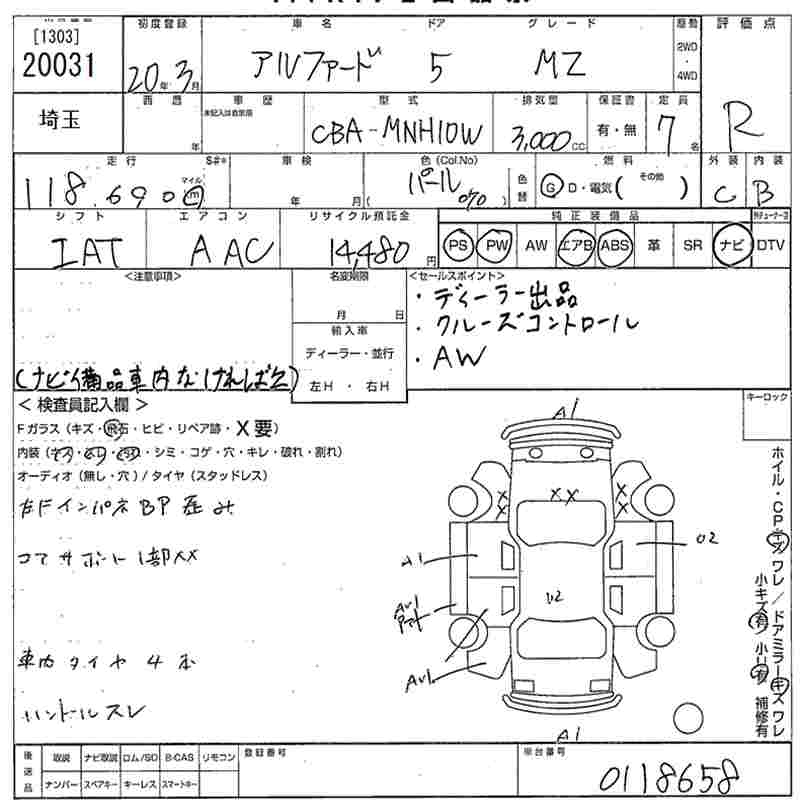 [1303]
20031
初度登録 車名 ドア グレード 駆動 評価点
20年3月 アルファード 5 MZ 2WD・4WD R
埼玉
西暦 車歴 型式 排気量 保証書 定員
年 未記入は自家用 CBA-MNH10W 3,000CC 有・無 7名
走行 S#* 車検 色(Col.No) 燃料 外装 内装
118,690 マイル km 年 月 パール( 070 ) 色替 G D・電気( その他 ) C B
シフト エアコン リサイクル預託金 純正装備品
IAT AAC 14,480円 PS PW AW エアB ABS 革 SR ナビ DTV
<注意事項> 名変期限 <セールスポイント>
月 日
・ディーラー出品
・クルーズコントロール
・AW
輸入車
ディーラー・並行
左H ・ 右H
(ナビ備品車内なければ欠)
<検査員記入欄> キーロック
Fガラス(キズ・飛石・ヒビ・リペア跡・X要)
内装(キズ・ヨレ・汚れ・シミ・コゲ・穴・キレ・破れ・割れ)
オーディオ(無し・穴)/タイヤ(スタッドレス)
右FインパネBP歪み
コアサポート1部XX
車内タイヤ4本
ハンドルスレ
A1
X X
X X
X X
A1
U2
U2
AU1
AU1
A1
ホイル・CPキズワレ/ドアミラーキズワレ
小キズ有 小U有 補修有
後送品 取説 ナビ取説 ロム/SD B-CAS リモコン 登録番号 車台番号
ナンバー スペアキー キーレス スマートキー 0118658